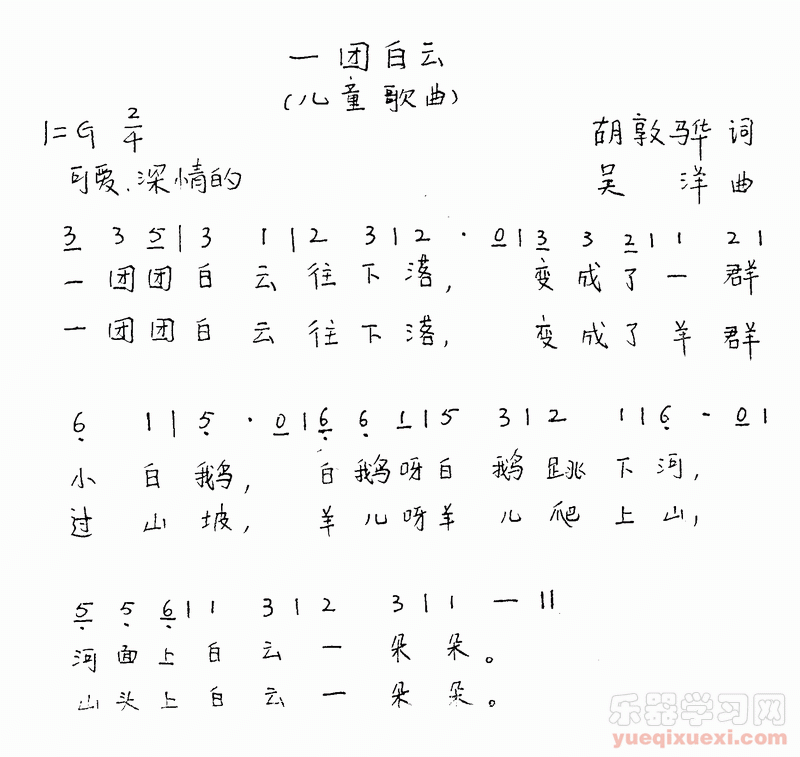 一团白云
(儿童歌曲)
1=G 2/4
胡敦骅 词
可爱、深情的
吴 洋 曲
3 3 5 | 3 1 | 2 3 | 2 · 0 | 3 3 2 | 1 2 |
一团团白云往下落， 变成了一群
一团团白云往下落， 变成了羊群
6 1 | 5 · 0 | 6 6 1 | 5 3 | 2 1 | 6 - 0 |
小白鹅， 白鹅呀白鹅跳下河，
过山坡， 羊儿呀羊儿爬上山，
5 5 6 | 1 3 | 2 3 | 1 — ||
河面上白云一朵朵。
山头上白云一朵朵。
乐器学习网
yueqixuexi.com